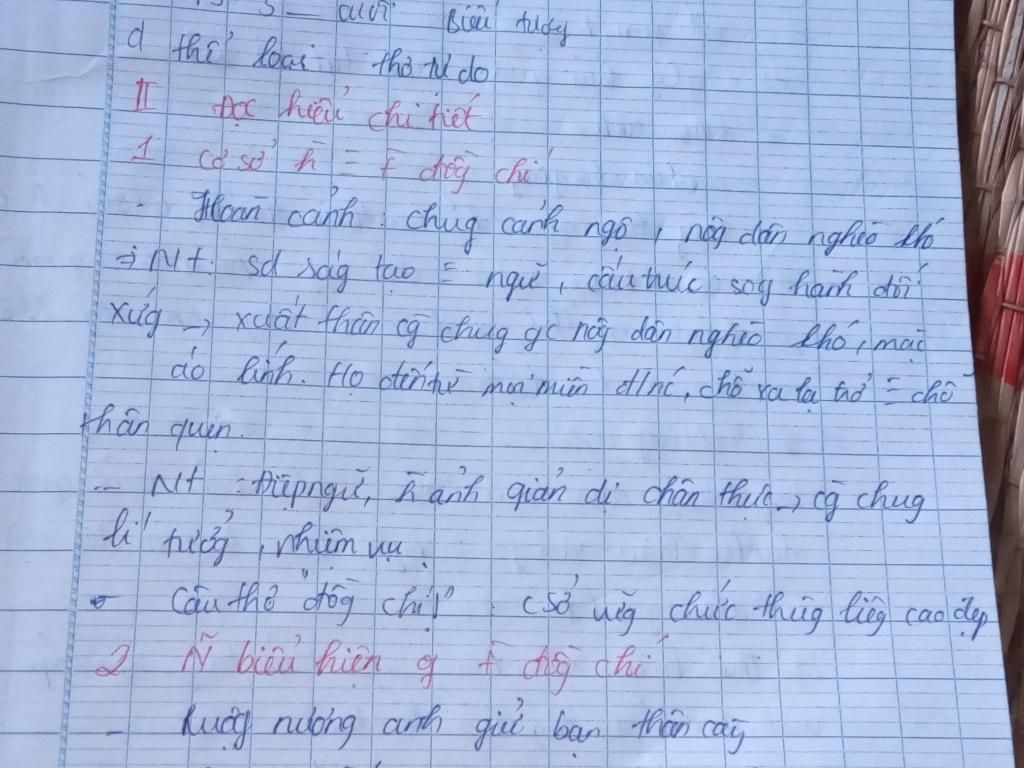 3 – cuối Biểu tượg
d thể loại thơ tự do
II Đọc hiểu chi tiết
1 Cơ sở h̄ = t̄ đồg chí
- Hoàn cảnh: chug cảnh ngộ, nôg dân nghèo khó
→ Nt: sd ság tạo = ngữ, cấu trúc sog hành đối
xứg → xuất thân cg̃ chug gc nôg dân nghèo khó, mặc
áo lính. Họ đến từ mọi miền đ/nc, chỗ xa lạ trở = chỗ
thân quen.
- Nt: Điệp ngữ, h̄ ảnh giản dị chân thực → cg̃ chug
lí tưởg, nhiệm vụ.
- Câu thơ "đồg chí!" sở chức thiêg liêg cao đẹp
2 Ñ biểu hiện g t̄ đồg chí
- Ruộg nương anh gửi bạn thân cày